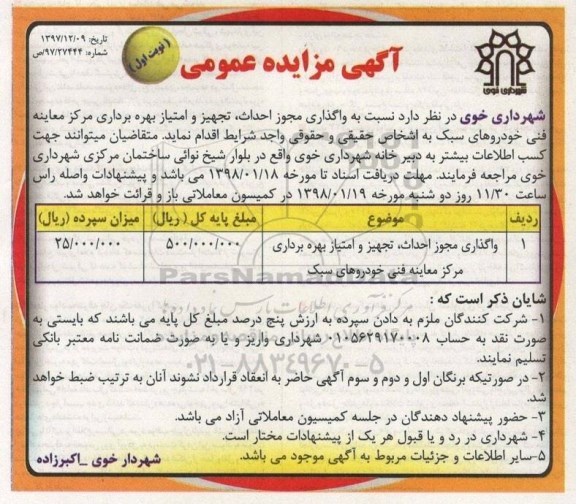 تاریخ: ۱۳۹۷/۱۲/۰۹
شماره: ۹۷/۲۷۴۴۴/ص
(نوبت اول)
آگهی مزایده عمومی
شهرداری خوی
شهرداری خوی در نظر دارد نسبت به واگذاری مجوز احداث، تجهیز و امتیاز بهره برداری مرکز معاینه
فنی خودروهای سبک به اشخاص حقیقی و حقوقی واجد شرایط اقدام نماید. متقاضیان میتوانند جهت
کسب اطلاعات بیشتر به دبیر خانه شهرداری خوی واقع در بلوار شیخ نوائی ساختمان مرکزی شهرداری
خوی مراجعه فرمایند. مهلت دریافت اسناد تا مورخه ۱۳۹۸/۰۱/۱۸ می باشد و پیشنهادات واصله راس
ساعت ۱۱/۳۰ روز دو شنبه مورخه ۱۳۹۸/۰۱/۱۹ در کمیسیون معاملاتی باز و قرائت خواهد شد.
ردیف موضوع مبلغ پایه کل ( ریال) میزان سپرده (ریال)
۱ واگذاری مجوز احداث، تجهیز و امتیاز بهره برداری ۵۰۰/۰۰۰/۰۰۰ ۲۵/۰۰۰/۰۰۰
مرکز معاینه فنی خودروهای سبک
ParsNamadData
شایان ذکر است که :
۱- شرکت کنندگان ملزم به دادن سپرده به ارزش پنج درصد مبلغ کل پایه می باشند که بایستی به
صورت نقد به حساب ۰۱۰۵۶۲۹۱۷۰۰۰۸ شهرداری واریز و یا به صورت ضمانت نامه معتبر بانکی
تسلیم نمایند.
۰۲۱-۸۸۳۴۹۶۷۰-۵
۲- در صورتیکه برنگان اول و دوم و سوم آگهی حاضر به انعقاد قرارداد نشوند آنان به ترتیب ضبط خواهد
شد.
۳- حضور پیشنهاد دهندگان در جلسه کمیسیون معاملاتی آزاد می باشد.
۴- شهرداری در رد و یا قبول هر یک از پیشنهادات مختار است.
۵-سایر اطلاعات و جزئیات مربوط به آگهی موجود می باشد.
شهردار خوی _اکبرزاده